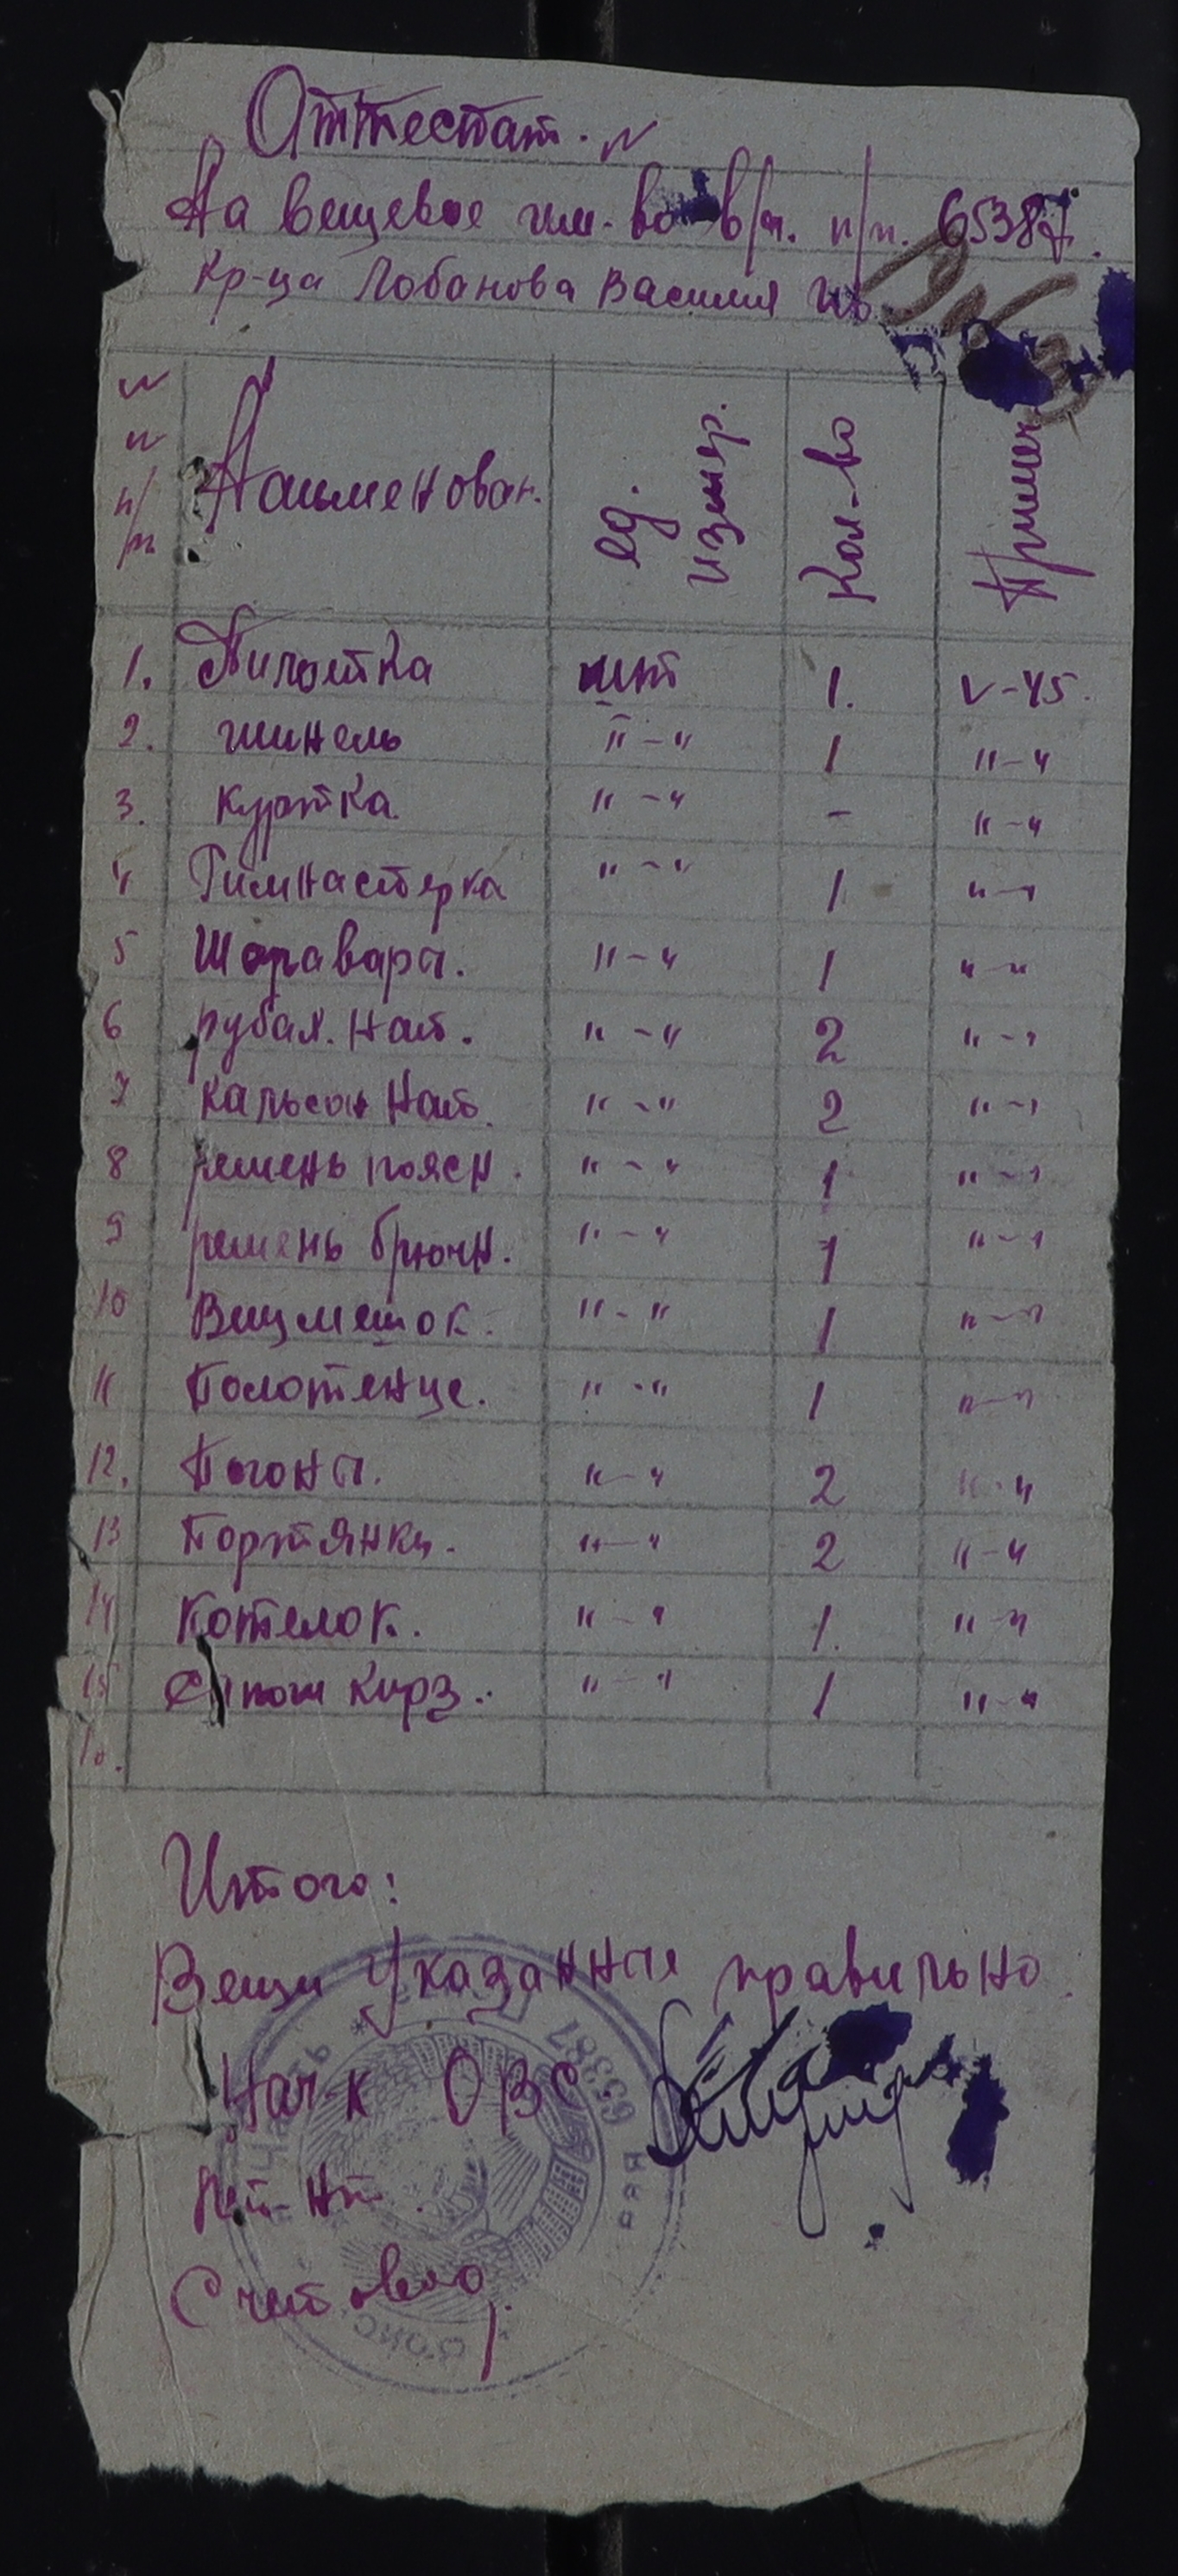 Аттестат. N
На вещевое им-во в/ч. п/п. 65387.
Кр-ца Лобанова Василия Ив.
N N п/п Наименован. ед. измер. Кол-во Примеч.
1. Пилотка шт 1. V-45.
2. шинель "-" 1 "-"
3. Куртка "-" - "-"
4 Гимнастерка "-" 1 "-"
5 Шаравары. "-" 1 "-"
6 рубах. Нат. "-" 2 "-"
7 кальсон Нат. "-" 2 "-"
8 ремень поясн. "-" 1 "-"
9 ремень брючн. "-" 1 "-"
10 Вещмешок. "-" 1 "-"
11 Полотенце. "-" 1 "-"
12. Погоны. "-" 2 "-"
13 Портянки. "-" 2 "-"
14 Котелок. "-" 1. "-"
15 Сапоги Кирз. "-" 1 "-"
16.
Итого:
Вещи указанные правильно.
Нач-к ОВС
Л-т-нт.
Счетовод
Часть 65387